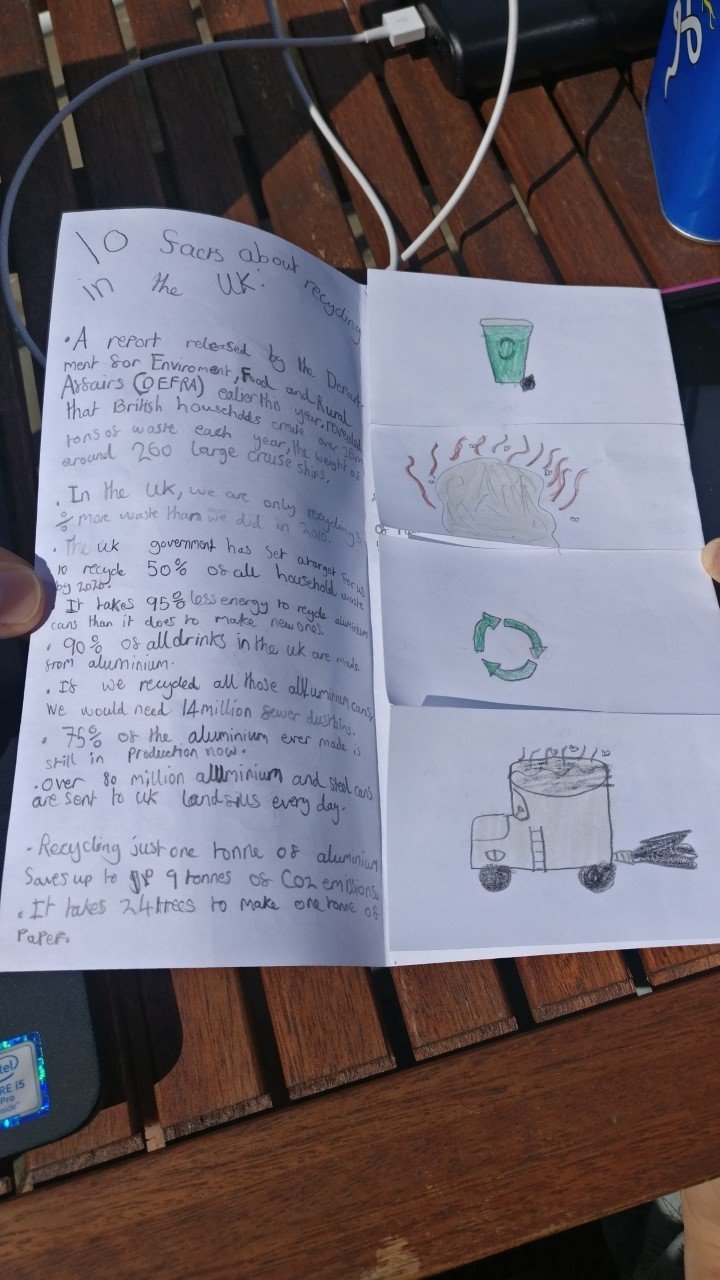 10 facts about recycling
in the UK:
• A report released by the Depart-
ment for Enviroment, Food and Rural
Affairs (DEFRA) ealier this year, revealed
that British households create over
tons of waste each year, the weight of
around 260 large cruise ships.
• In the UK, we are only recycling
% more waste than we did in 2010.
• The uk government has set a target for us
to recycle 50% of all household waste
by 2020.
• It takes 95% less energy to recycle aluminium
cans than it does to make new ones.
• 90% of all drinks in the uk are made
from aluminium.
• If we recycled all those alluminium cans,
we would need 14 million fewer dustbins.
• 75% of the aluminium ever made is
still in production now.
• Over 80 million alluminium and steel cans
are sent to UK landfills every day.
• Recycling just one tonne of aluminium
Saves up to 9 tonnes of CO2 emissions.
• It takes 24 trees to make one tonne of
Paper.
intel
CORE i5
Pro
inside